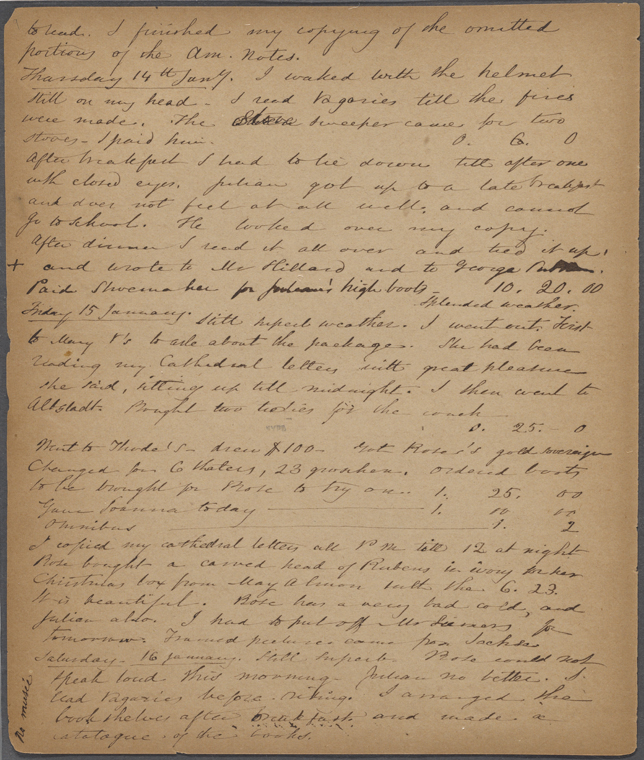 to read. I finished my copying of the omitted
portions of the Am. Notes.
Thursday 14th Jany. I waked with the helmet
still on my head - I read Vagaries till the fires
were made. The sweeper came for two
stoves - I paid him. 0. 6. 0
After breakfast I had to lie down till after one
with closed eyes. Julian got up to a late breakfast
and does not feel at all well, and cannot
go to school. He looked over my copy.
After dinner I read it all over and tied it up,
+ and wrote to Mr Hillard and to George
Paid Shoemaker for Julian's high boots - 10. 20. 00
Splended weather.
Friday 15 January. Still superb weather. I went out, First
to Mary V's to ask about the packages. She had been
reading my Cathedral letters with great pleasure
she said, sitting up till midnight. I then went to
Altstadt. Bought two tidies for the couch
0. 25 - 0
Went to Thode's - drew $100 - Got Rose's gold sovereign
Changed for 6 thalers, 23 groschen. Ordered boots
to be brought for Rose to try on. 1. 25. 00
Gave Joanna today 1. 10 00
Omnibus 1. 2
I copied my cathedral letters all P M till 12 at night
Rose bought a carved head of Rubens in ivory for her
Christmas box from May Almon with the 6. 23.
It is beautiful. Rose has a very bad cold, and
Julian also. I had to put off Mr for
tomorrow. Framed pictures came from Sachse
Saturday - 16 January. Still superb. Rose could not
speak loud this morning - Julian no better. I
read Vagaries before rising. I arranged the
bookshelves after breakfast and made a
catalogue of the books.
No music